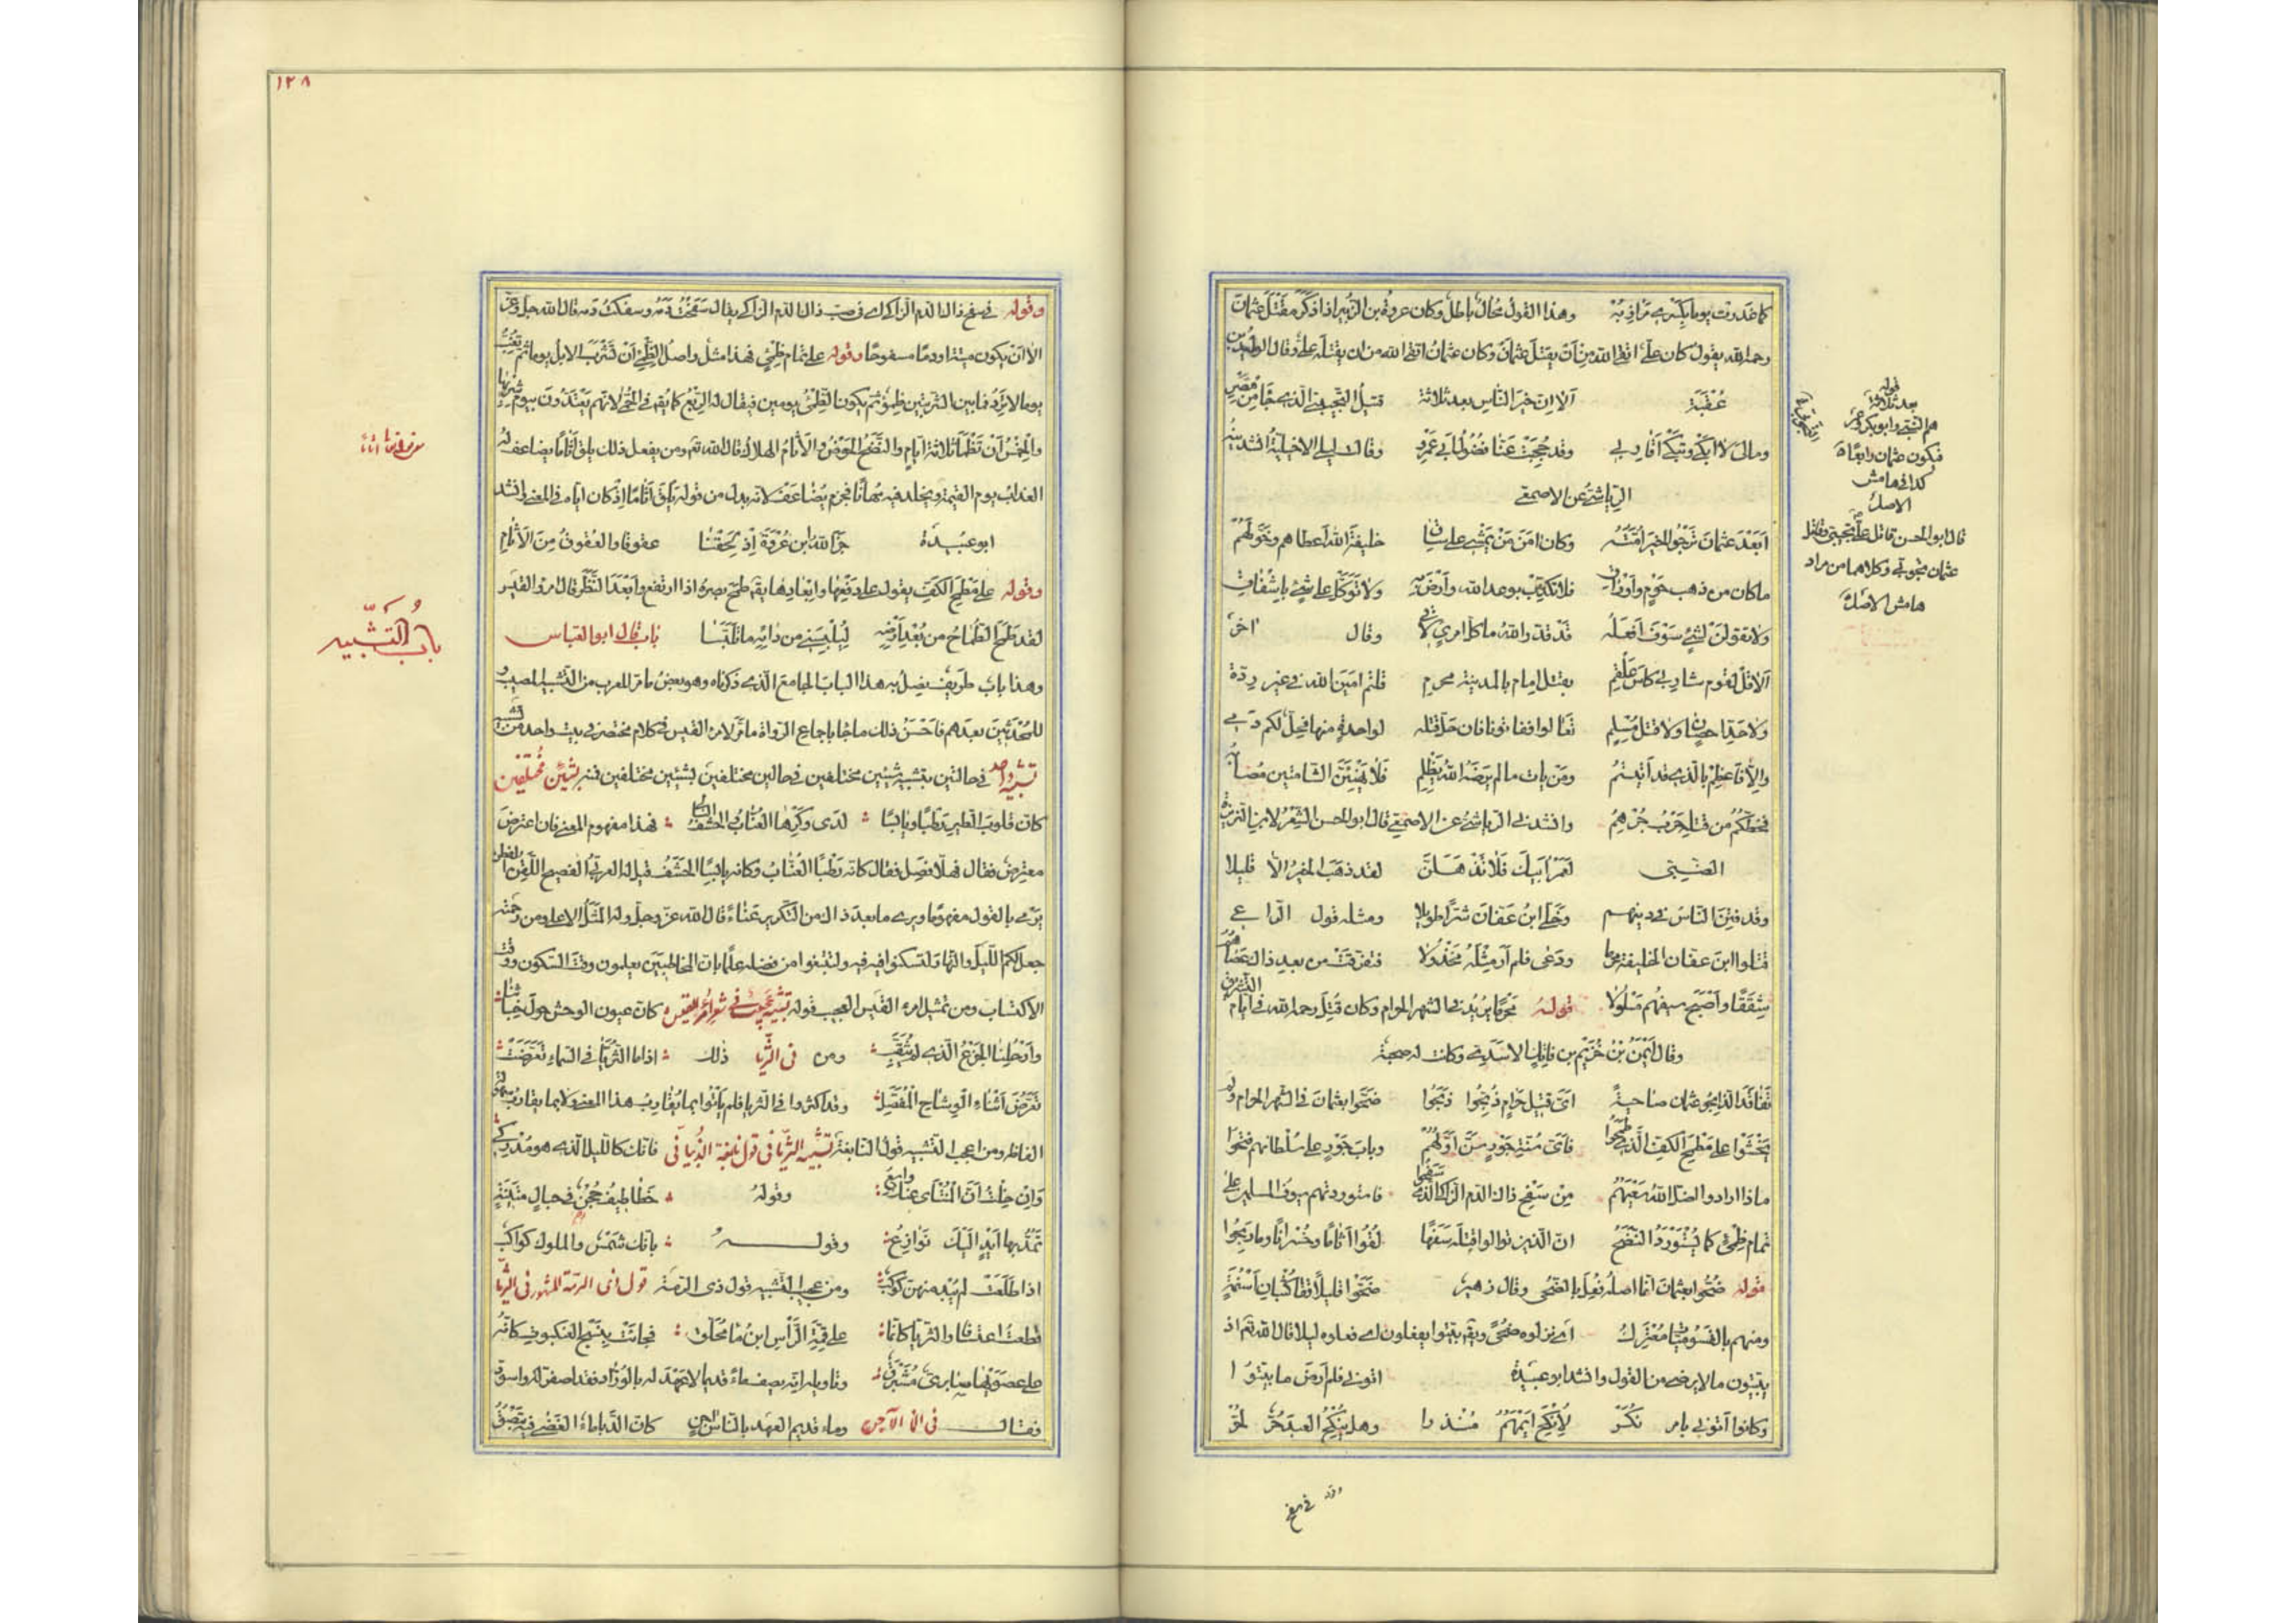 كما غدرت يوما بكسرى مرازبه وهذا القول محال باطل وكان عروة بن الزبير اذا ذكر مقتل عثمان
رحمه الله يقول كان علي اتقى لله من ان يقتل عثمان وكان عثمان اتقى لله من ان يقتله علي وقال الوليد بن
عقبة الا ان خير الناس بعد ثلاثة قتيل التجيبي الذي جاء من مصر
ومالي لا ابكي وتبكي اقاربي وقد حجبت عنا فضول ابي عمرو وقالت ليلى الاخيلية انشدنيه
الرياشي عن الاصمعي
ابعد عثمان ترجو الخير امته وكان امن من يمشي على ساق خليفة الله اعطاهم وخولهم
ما كان من ذهب حوم واوراق فلا تكذب بوعد الله وارض به ولا توكل على شيء باشفاق
ولا تقولن لشيء سوف افعله قد قدر الله ما كل امرئ لاق وقال اخر
الا قل لقوم شاربي كاس علقم بقتل امام بالمدينة محرم قتلتم امين الله في غير ردة
ولا حد احصان ولا قتل مسلم تعالوا ففاتونا فان حل قتله لواحدة منها فحل لكم دمي
والا فاعظم بالذي قد اتيتم ومن يات ما لم يرضه الله يظلم فلا يهنئن الشامتين مصابه
فحظكم من قتله حرب جرهم وانشدني الرياشي عن الاصمعي قال ابو الحسن الشعر لابن الغريزة
الضبي لعمر ابيك فلا تذهلن لقد ذهب الخير الا قليلا
وقد فتن الناس في دينهم وخلى ابن عفان شرا طويلا ومثله قول الراعي
قتلوا ابن عفان الخليفة محرما ودعى فلم ار مثله مخذولا فتفرقت من بعد ذاك عصاهم
شققا واصبح سيفهم مسلولا قوله محرما يريد في الشهر الحرام وكان قتل رحمه الله في ايام التشريق
وقال ايمن بن خريم بن فاتك الاسدي وكانت له صحبة
تفاقد الذابحو عثمان ضاحية اي قتيل حرام ذبحوا ذبحوا ضحوا بعثمان في الشهر الحرام ولم
يخشوا على مطمح الكف الذي طمحوا فاي سنة جور سن اولهم وباب جور على سلطانهم فتحوا
ماذا ارادوا اضل الله سعيهم من سفح ذاك الدم الزاكي الذي سفحوا فاستوردتهم سيوف المسلمين على
تمام ظمئ كما يستورد النضح ان الذين تولوا قتله سفها لقوا اثاما وخسرانا وما ربحوا
قوله ضحوا بعثمان انما اصله فعل بالضحى وقال زهير ضحوا قليلا قفا كثبان اسنمة
ومنهم بالقسوميات معترك اي نزلوه ضحى ويقال بيتوا يفعلون اي فعلوه ليلا قال الله تعالى اذ
يبيتون ما لا يرضى من القول وانشد ابو عبيدة اتوني فلم ارض ما بيتوا
وكانوا اتوني بامر نكر لانكح ايمهم منذرا وهل ينكح العبد حر لحر
قوله
بعد ثلاثة
هم النبي وابو بكر وعمر
فيكون عثمان رابعا
كذا في هامش
الاصل
قال ابو الحسن قاتل علي تجيبي وقاتل
عثمان تجوبي وكلاهما من مراد
هامش الاصل
وقوله في سفح
١٢٨
وقوله في سفح ذاك الدم الزاكي اي في صب ذاك الدم الزاكي يقال سفحت دمه وسفكت دمه قال الله جل وعز
الا ان يكون ميتة او دما مسفوحا وقوله على تمام ظمئ فهذا مثل واصل الظمئ ان تشرب الابل يوما ثم تغب
يوما لا ترد فما بين الشربتين ظمؤ ثم يكون الظمئ يومين فيقال له الربع كما يقال في الحمى لانهم يعتدون بيوم شربها
والخمس ان تظمأ ثلاثة ايام والنضح الحوض والاثام الهلاك قال الله تعالى ومن يفعل ذلك يلق اثاما يضاعف له
العذاب يوم القيمة ويخلد فيه مهانا فجزم يضاعف لانه بدل من قوله يلق اثاما اذ كان اياه في المعنى انشد
ابو عبيدة جزا الله ابن عروة اذ لحقنا عقوقا والعقوق من الاثام
وقوله على مطمح الكف يقول على رفعها وابعادها يقال طمح بصره اذا ارتفع وابعد النظر قال امرؤ القيس
لقد طمح الطماح من بعد ارضه ليلبسني من دائه ما تلبسا باب قال ابو العباس
وهذا باب طريف نصل به هذا الباب الجامع الذي ذكرناه وهو بعض ما مر للعرب من التشبيه المصيب و
للمحدثين بعدهم فاحسن ذلك ما جاء باجماع الرواة ما مر لامرئ القيس في كلام مختصر في بيت واحد من تشبيه
تشبيه واحد في حالتين بتشبيه شيئين مختلفين في حالين مختلفين بشيئين مختلفين تشبيه شيئين مختلفين
كان قلوب الطير رطبا ويابسا لدى وكرها العناب والحشف البالي فهذا مفهوم المعنى فان اعترض
معترض فقال فهلا فصل فقال كانه رطبا العناب وكانه يابسا الحشف قيل له العربي الفصيح اللقن الفطن
يرمي بالقول مفهوما ويرى ما بعد ذاك من التكرير عناء قال الله عز وجل وله المثل الاعلى ومن رحمته
جعل لكم الليل والنهار لتسكنوا فيه ولتبتغوا من فضله علما بان المخاطبين يعلمون وقت السكون ووقت
الاكتساب ومن تمثيل امرئ القيس العجيب قوله تشبيه عجيب في شعر امرء القيس كان عيون الوحش حول خبائنا
وارحلنا الجزع الذي لم يثقب ومن في الثريا ذلك اذا ما الثريا في السماء تعرضت
تعرض اثناء الوشاح المفصل وقد اكثروا في الثريا فلم ياتوا بما يقارب هذا المعنى ولا بما يقارب سهولة
الفاظه ومن اعجب التشبيه قول النابغة تشبيه الثريا في قول نابغة الذبياني فانك كالليل الذي هو مدركي
وان خلت ان المنتأى عنك واسع وقوله خطاطيف حجن في حبال متينة
تمد بها ايد اليك نوازع وقوله بانك شمس والملوك كواكب
اذا طلعت لم يبد منهن كوكب ومن عجيب التشبيه قول ذي الرمة قول ذى الرمة المشهور فى الثريا
قطعت اعتسافا والثريا كانها على قمة الرأس ابن ماء محلق فجاءت بنسج العنكبوت كانه
على عصويها سابري مشبرق وتاويله انه يصف ماء قديما لا عهد له بالوراد فقد اصفر واسود
فقال فى الماء الآجن وماء قديم العهد بالناس اجن كان الدبا ماء الغضى فيه تبصق
باب التشبيه